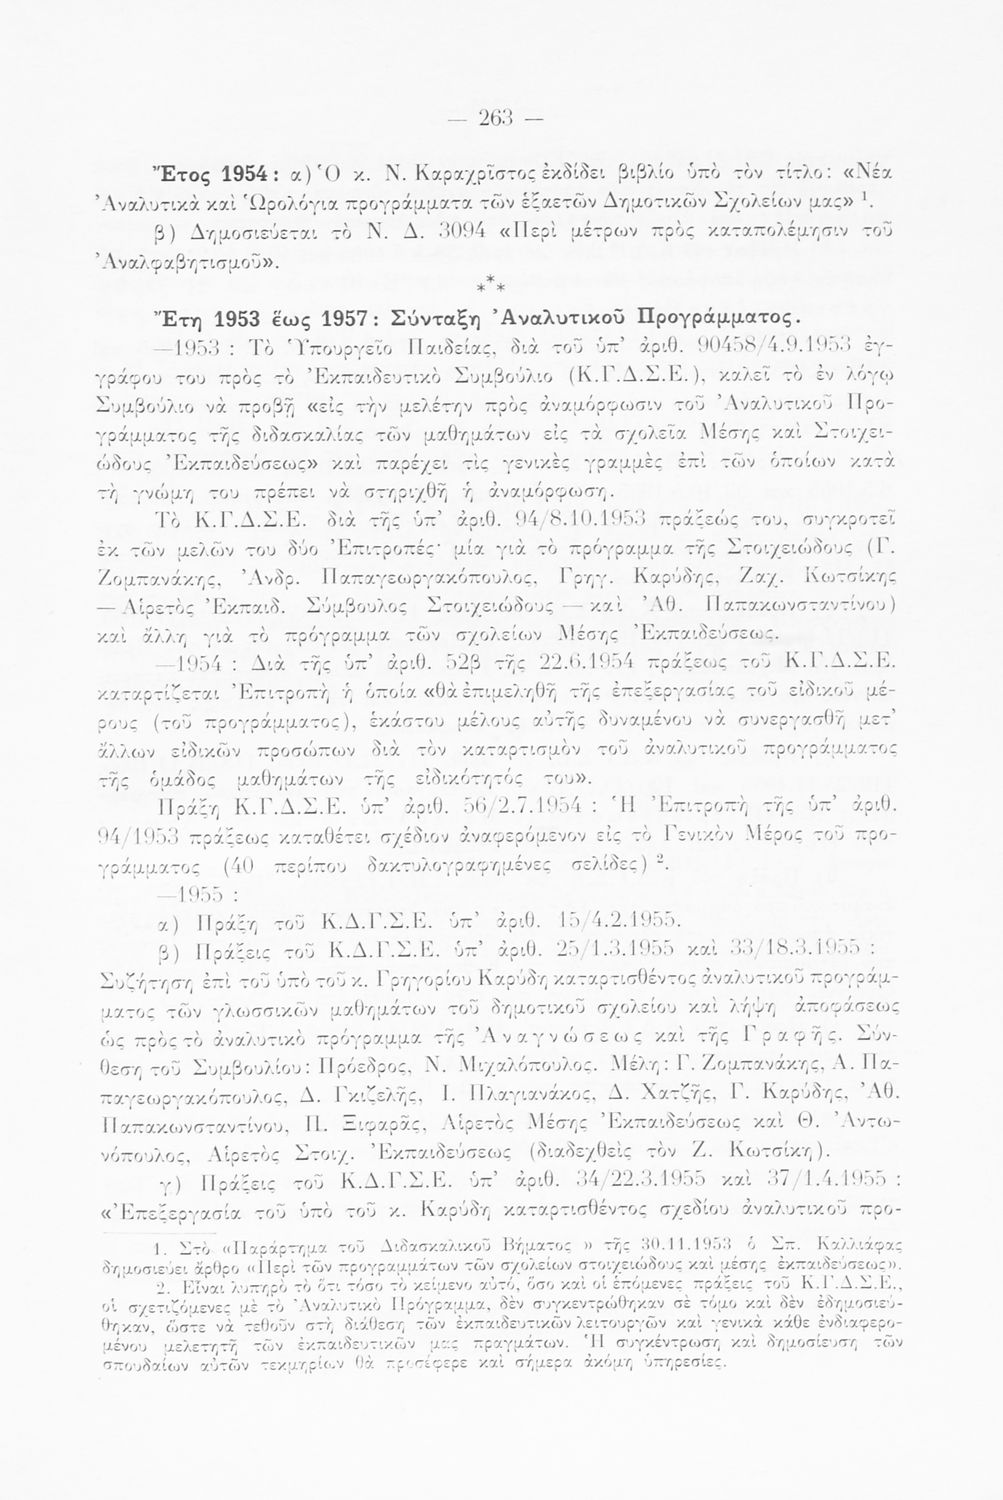 — 263 —
Ἔτος 1954 : α) Ὁ κ. Ν. Καραχρῖστος ἐκδίδει βιβλίο ὑπὸ τὸν τίτλο : «Νέα
Ἀναλυτικὰ καὶ Ὡρολόγια προγράμματα τῶν ἑξαετῶν Δημοτικῶν Σχολείων μας» ¹.
β) Δημοσιεύεται τὸ Ν. Δ. 3094 «Περὶ μέτρων πρὸς καταπολέμησιν τοῦ
Ἀναλφαβητισμοῦ».
***
Ἔτη 1953 ἕως 1957 : Σύνταξη Ἀναλυτικοῦ Προγράμματος.
—1953 : Τὸ Ὑπουργεῖο Παιδείας, διὰ τοῦ ὑπ’ ἀριθ. 90458/4.9.1953 ἐγ-
γράφου του πρὸς τὸ Ἐκπαιδευτικὸ Συμβούλιο (Κ.Γ.Δ.Σ.Ε.), καλεῖ τὸ ἐν λόγῳ
Συμβούλιο νὰ προβῇ «εἰς τὴν μελέτην πρὸς ἀναμόρφωσιν τοῦ Ἀναλυτικοῦ Προ-
γράμματος τῆς διδασκαλίας τῶν μαθημάτων εἰς τὰ σχολεῖα Μέσης καὶ Στοιχει-
ώδους Ἐκπαιδεύσεως» καὶ παρέχει τὶς γενικὲς γραμμὲς ἐπὶ τῶν ὁποίων κατὰ
τὴ γνώμη του πρέπει νὰ στηριχθῇ ἡ ἀναμόρφωση.
Τὸ Κ.Γ.Δ.Σ.Ε. διὰ τῆς ὑπ’ ἀριθ. 94/8.10.1953 πράξεώς του, συγκροτεῖ
ἐκ τῶν μελῶν του δύο Ἐπιτροπές· μία γιὰ τὸ πρόγραμμα τῆς Στοιχειώδους (Γ.
Ζομπανάκης, Ἀνδρ. Παπαγεωργακόπουλος, Γρηγ. Καρύδης, Ζαχ. Κωτσίκης
— Αἱρετὸς Ἐκπαιδ. Σύμβουλος Στοιχειώδους — καὶ Ἀθ. Παπακωνσταντίνου)
καὶ ἄλλη γιὰ τὸ πρόγραμμα τῶν σχολείων Μέσης Ἐκπαιδεύσεως.
—1954 : Διὰ τῆς ὑπ’ ἀριθ. 52β τῆς 22.6.1954 πράξεως τοῦ Κ.Γ.Δ.Σ.Ε.
καταρτίζεται Ἐπιτροπὴ ἡ ὁποία «θὰ ἐπιμεληθῇ τῆς ἐπεξεργασίας τοῦ εἰδικοῦ μέ-
ρους (τοῦ προγράμματος), ἑκάστου μέλους αὐτῆς δυναμένου νὰ συνεργασθῇ μετ’
ἄλλων εἰδικῶν προσώπων διὰ τὸν καταρτισμὸν τοῦ ἀναλυτικοῦ προγράμματος
τῆς ὁμάδος μαθημάτων τῆς εἰδικότητός του».
Πράξη Κ.Γ.Δ.Σ.Ε. ὑπ’ ἀριθ. 56/2.7.1954 : Ἡ Ἐπιτροπὴ τῆς ὑπ’ ἀριθ.
94/1953 πράξεως καταθέτει σχέδιον ἀναφερόμενον εἰς τὸ Γενικὸν Μέρος τοῦ προ-
γράμματος (40 περίπου δακτυλογραφημένες σελίδες) ².
—1955 :
α) Πράξη τοῦ Κ.Δ.Γ.Σ.Ε. ὑπ’ ἀριθ. 15/4.2.1955.
β) Πράξεις τοῦ Κ.Δ.Γ.Σ.Ε. ὑπ’ ἀριθ. 25/1.3.1955 καὶ 33/18.3.1955 :
Συζήτηση ἐπὶ τοῦ ὑπὸ τοῦ κ. Γρηγορίου Καρύδη καταρτισθέντος ἀναλυτικοῦ προγράμ-
ματος τῶν γλωσσικῶν μαθημάτων τοῦ δημοτικοῦ σχολείου καὶ λήψη ἀποφάσεως
ὡς πρὸς τὸ ἀναλυτικὸ πρόγραμμα τῆς Ἀναγνώσεως καὶ τῆς Γραφῆς. Σύν-
θεση τοῦ Συμβουλίου : Πρόεδρος, Ν. Μιχαλόπουλος. Μέλη : Γ. Ζομπανάκης, Α. Πα-
παγεωργακόπουλος, Δ. Γκιζελῆς, Ι. Πλαγιανάκος, Δ. Χατζῆς, Γ. Καρύδης, Ἀθ.
Παπακωνσταντίνου, Π. Ξιφαρᾶς, Αἱρετὸς Μέσης Ἐκπαιδεύσεως καὶ Θ. Ἀντω-
νόπουλος, Αἱρετὸς Στοιχ. Ἐκπαιδεύσεως (διαδεχθεὶς τὸν Ζ. Κωτσίκη).
γ) Πράξεις τοῦ Κ.Δ.Γ.Σ.Ε. ὑπ’ ἀριθ. 34/22.3.1955 καὶ 37/1.4.1955 :
«Ἐπεξεργασία τοῦ ὑπὸ τοῦ κ. Καρύδη καταρτισθέντος σχεδίου ἀναλυτικοῦ προ-
1. Στὸ «Παράρτημα τοῦ Διδασκαλικοῦ Βήματος » τῆς 30.11.1953 ὁ Σπ. Καλλιάφας
δημοσιεύει ἄρθρο «Περὶ τῶν προγραμμάτων τῶν σχολείων στοιχειώδους καὶ μέσης ἐκπαιδεύσεως».
2. Εἶναι λυπηρὸ τὸ ὅτι τόσο τὸ κείμενο αὐτό, ὅσο καὶ οἱ ἑπόμενες πράξεις τοῦ Κ.Γ.Δ.Σ.Ε.,
οἱ σχετιζόμενες μὲ τὸ Ἀναλυτικὸ Πρόγραμμα, δὲν συγκεντρώθηκαν σὲ τόμο καὶ δὲν ἐδημοσιεύ-
θηκαν, ὥστε νὰ τεθοῦν στὴ διάθεση τῶν ἐκπαιδευτικῶν λειτουργῶν καὶ γενικὰ κάθε ἐνδιαφερο-
μένου μελετητῆ τῶν ἐκπαιδευτικῶν μας πραγμάτων. Ἡ συγκέντρωση καὶ δημοσίευση τῶν
σπουδαίων αὐτῶν τεκμηρίων θὰ προσέφερε καὶ σήμερα ἀκόμη ὑπηρεσίες.